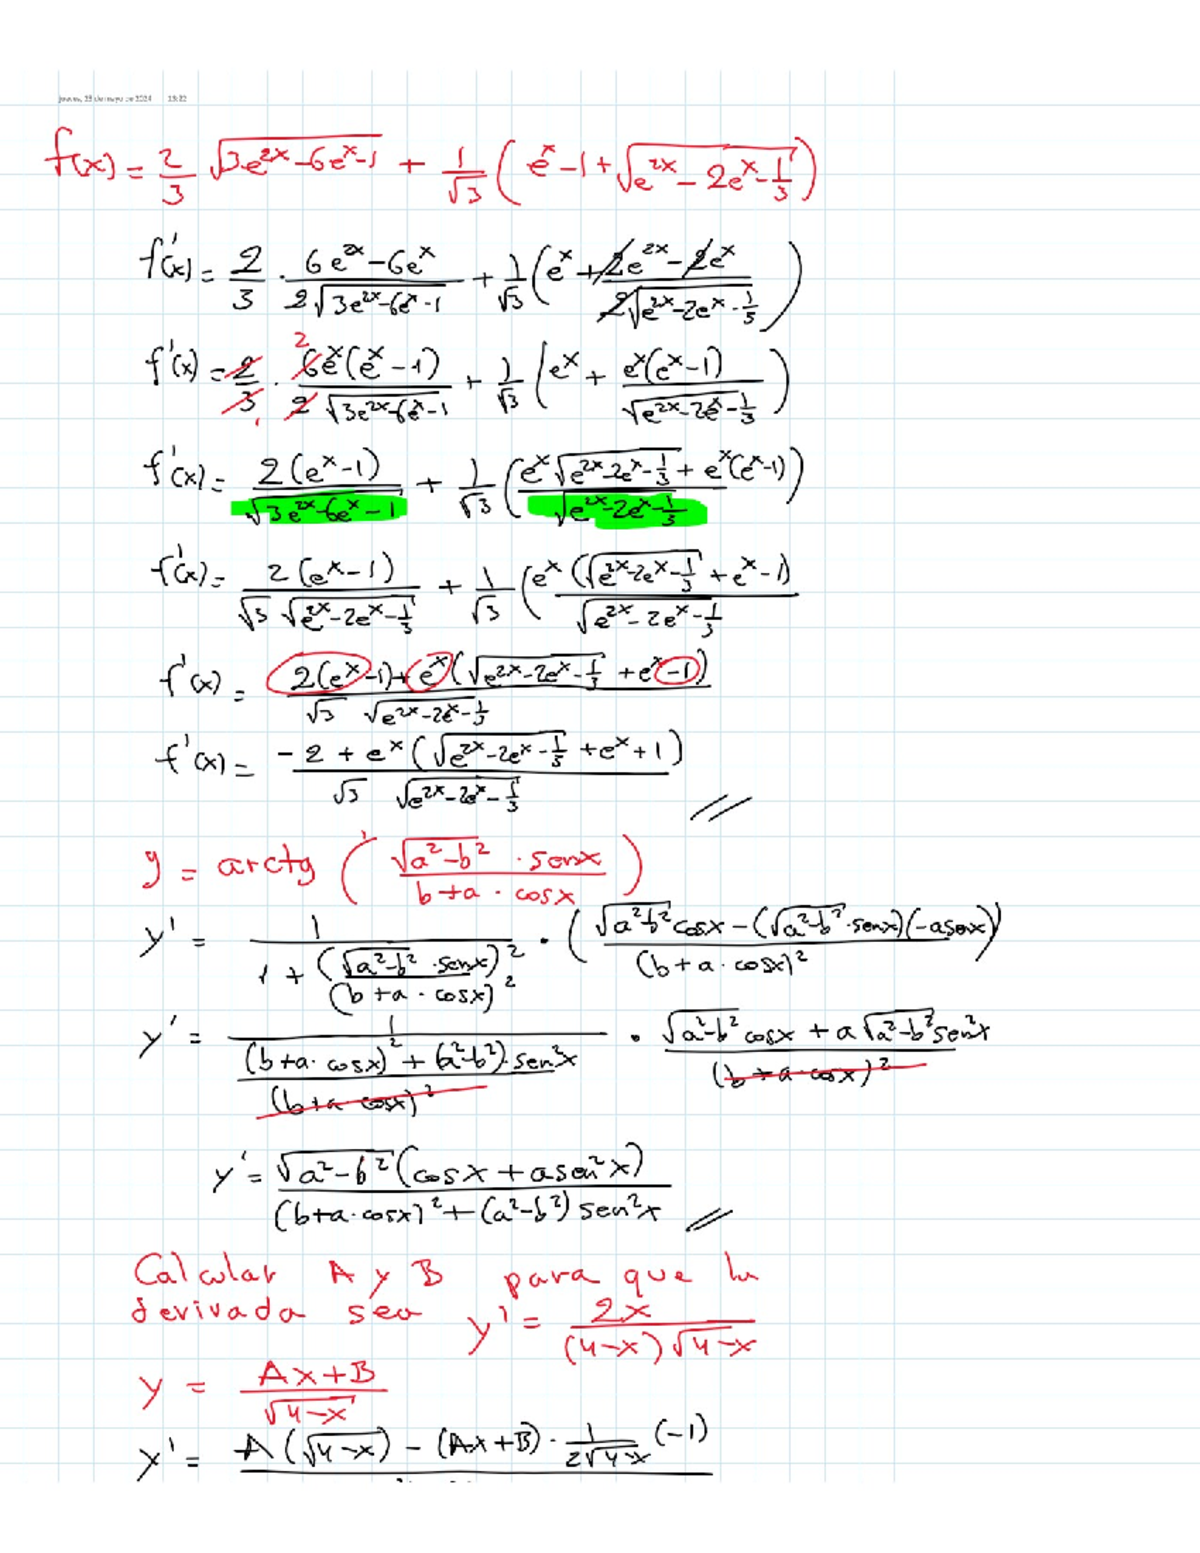 jueves, 23 de mayo de 2024 13:22
f(x) = 2/3 √(3e^(2x)-6e^x-1) + 1/√3 (e^x-1+√(e^(2x)-2e^x-1/3))
f'(x) = 2/3 · (6e^(2x)-6e^x)/(2√(3e^(2x)-6e^x-1)) + 1/√3 (e^x + (2e^(2x)-2e^x)/(2√(e^(2x)-2e^x-1/3)))
f'(x) = 2/3 · 6e^x(e^x-1)/(2√(3e^(2x)-6e^x-1)) + 1/√3 (e^x + e^x(e^x-1)/√(e^(2x)-2e^x-1/3))
f'(x) = 2(e^x-1)/√(3e^(2x)-6e^x-1) + 1/√3 ((e^x√(e^(2x)-2e^x-1/3) + e^x(e^x-1))/√(e^(2x)-2e^x-1/3))
f'(x) = 2(e^x-1)/(√3 √(e^(2x)-2e^x-1/3)) + 1/√3 (e^x(√(e^(2x)-2e^x-1/3) + e^x-1)/√(e^(2x)-2e^x-1/3)
f'(x) = (2(e^x-1)+e^x(√(e^(2x)-2e^x-1/3) + e^x-1))/(√3 √(e^(2x)-2e^x-1/3))
f'(x) = (-2 + e^x(√(e^(2x)-2e^x-1/3) + e^x+1))/(√3 √(e^(2x)-2e^x-1/3)) //
y = arctg (√(a²-b²) · senx/(b+a · cosx))
y' = 1/(1 + (√(a²-b²) · senx)²/(b+a · cosx)²) · ((√(a²-b²) cosx - (√(a²-b²) · senx)(-a senx))/(b+a · cosx)²)
y' = 1/(((b+a· cosx)² + (a²-b²)· sen²x)/(b+a cosx)²) · (√(a²-b²) cosx + a√(a²-b²) sen²x)/(b+a·cosx)²
y' = √(a²-b²)(cosx + a sen²x)/((b+a·cosx)² + (a²-b²) sen²x) //
Calcular A y B para que la
derivada sea y' = 2x/((4-x)√(4-x))
y = (Ax+B)/√(4-x)
y' = A(√(4-x)) - (Ax+B) · 1/(2√(4-x)) (-1)